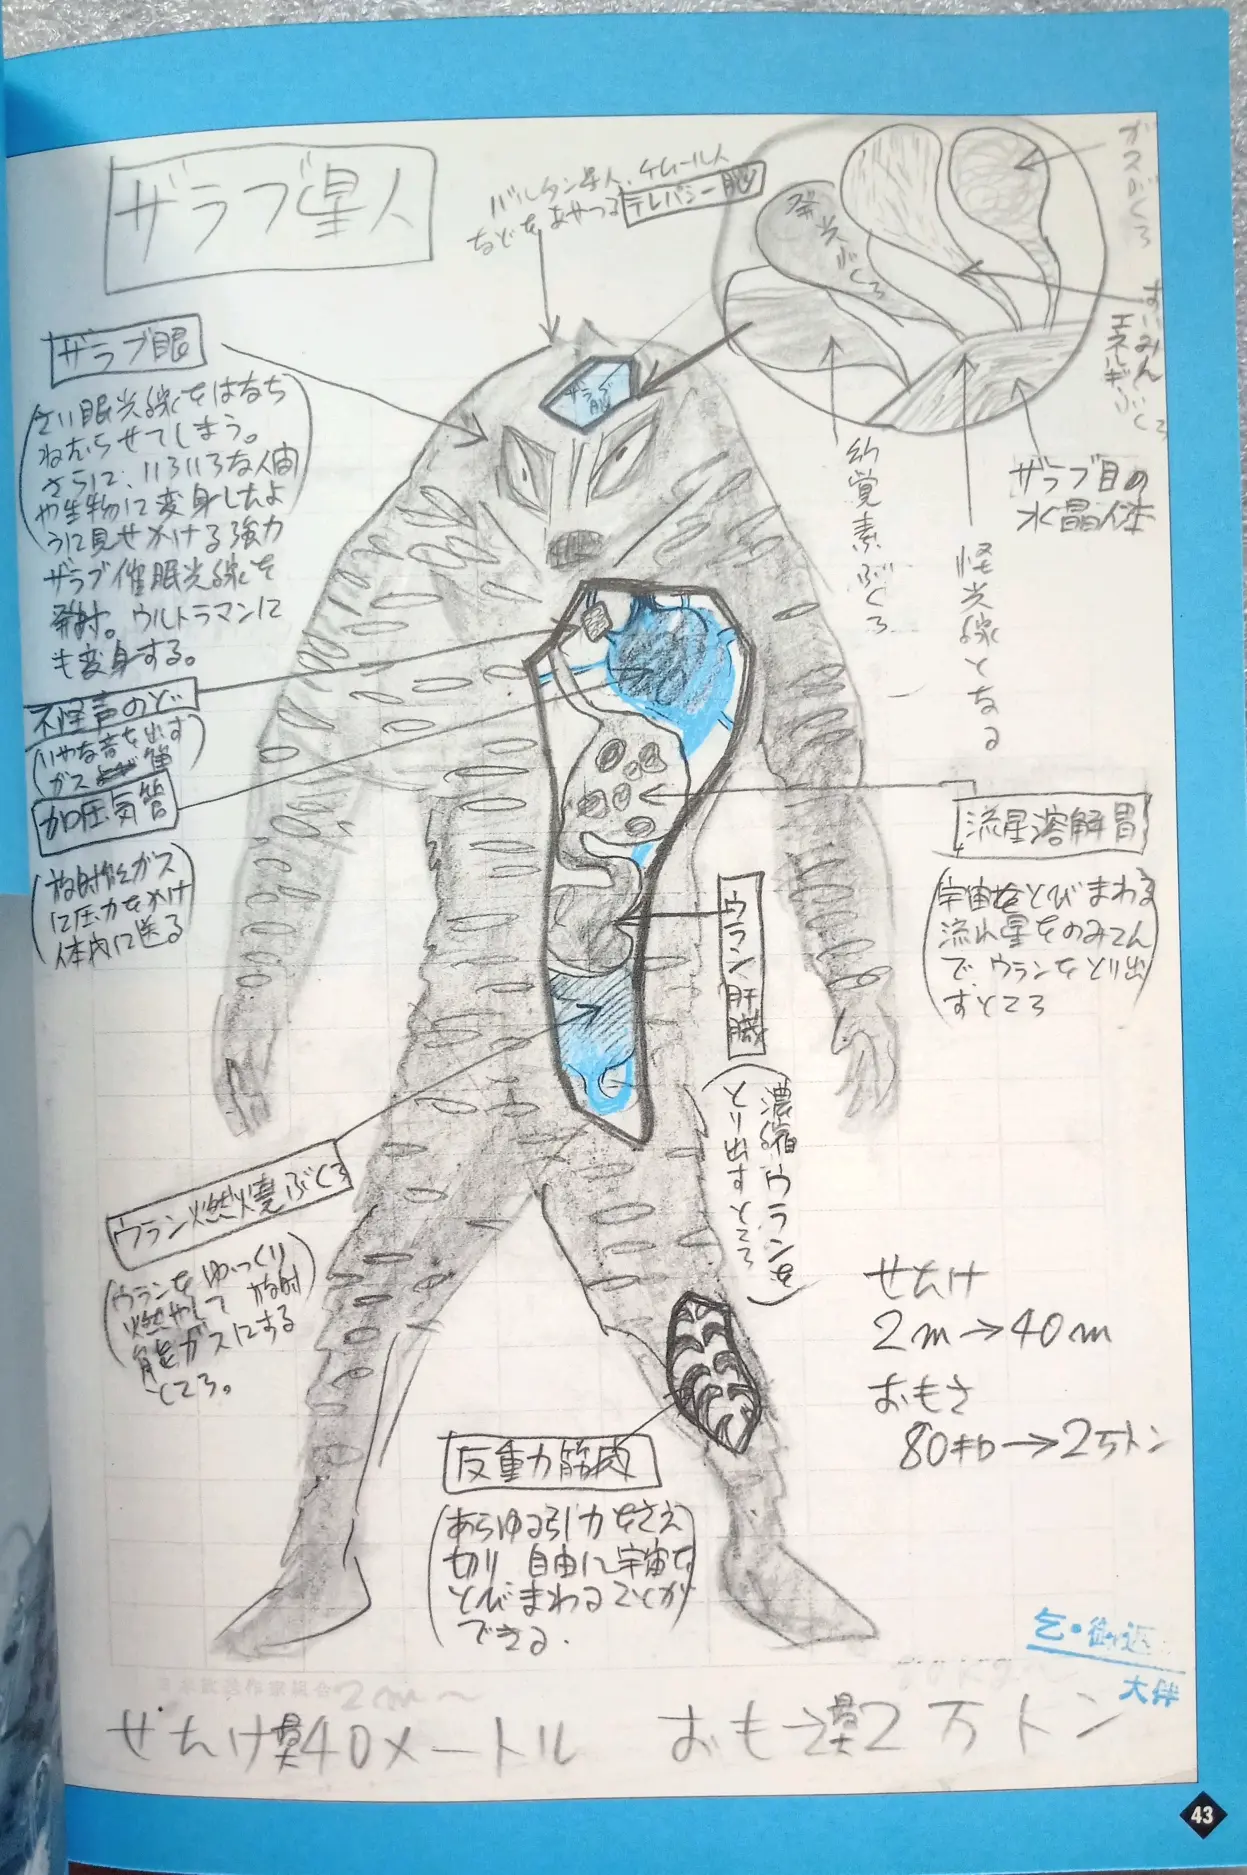 ザラブ星人
バルタン星人、ケムール人
などをあやつる テレパシー脳
ガスぶくろ
発光ぶくろ
さいみん
エネルギー
ぶくろ
ザラブ脳
幻覚素ぶくろ
怪光線となる
ザラブ目の
水晶体
ザラブ眼
さい眠光線をはなち
ねむらせてしまう。
さらに、いろいろな人間
や生物に変身したよ
うに見せかける強力
ザラブ催眠光線を
発射。ウルトラマンに
も変身する。
不怪声のど
(いやな音を出す
ガス 管)
加圧気管
(放射能ガス
に圧力をかけ
体内に送る)
流星溶解胃
(宇宙をとびまわる
流れ星をのみこん
で ウランをとり出
すところ)
ウラン肝臓
(濃縮ウランを
とり出すところ)
ウラン燃焼ぶくろ
(ウランをゆっくり
燃やして 放射
能ガスにする
ところ。)
反重力筋肉
(あらゆる引力をさえ
切り 自由に宇宙を
とびまわることが
できる.)
せたけ
2m→40m
おもさ
80キロ→2万トン
乞・御返
大伴
2m〜
せたけ 40メートル おも 2万トン
43